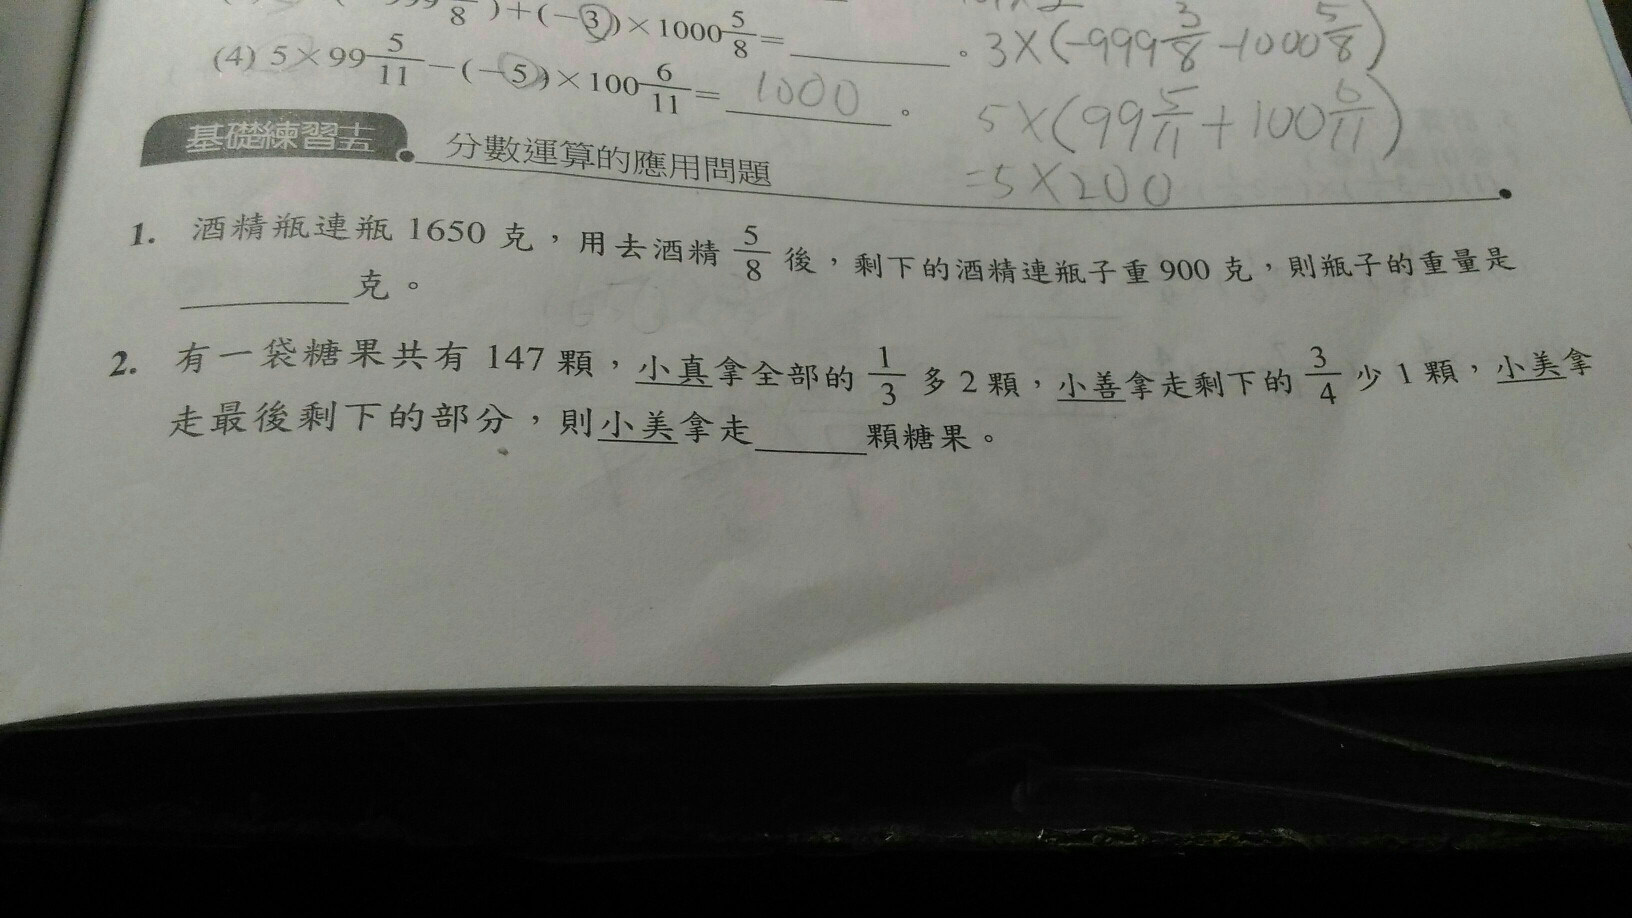 8 )+(−3)×1000 5/8=______。 3×(-999 3/8 -1000 5/8)
(4) 5×99 5/11−(−5)×100 6/11= 1000 。 5×(99 5/11 + 100 6/11)
=5×200
基礎練習十五 分數運算的應用問題
1. 酒精瓶連瓶 1650 克，用去酒精 5/8 後，剩下的酒精連瓶子重 900 克，則瓶子的重量是
______克。
2. 有一袋糖果共有 147 顆，小真拿全部的 1/3 多 2 顆，小善拿走剩下的 3/4 少 1 顆，小美拿
走最後剩下的部分，則小美拿走______顆糖果。